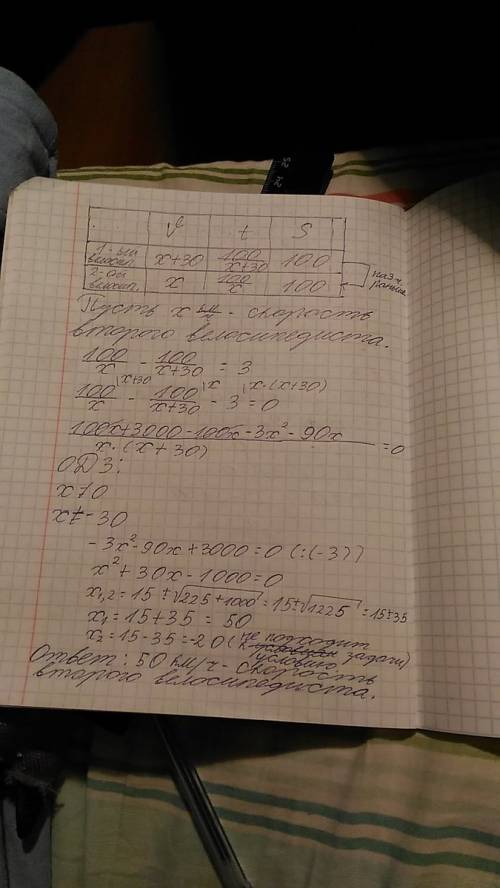 V t S
1-ый велосип. x+30 100/x+30 100
2-ой велосип. x 100/x 100
на 3 ч. раньше
Пусть x км/ч - скорость
второго велосипедиста.
100/x - 100/x+30 = 3
100/x \x+30 - 100/x+30 \x - 3 \x·(x+30) = 0
100x+3000-100x-3x²-90x/x·(x+30) =0
ОДЗ:
x≠0
x≠-30
-3x²-90x+3000=0 (:(-3))
x²+30x-1000=0
x1,2=15±√225+1000=15±√1225=15±35
x1=15+35=50
x2=15-35=-20 (не подходит
к условию задачи)
Ответ: 50 км/ч - скорость
второго велосипедиста.